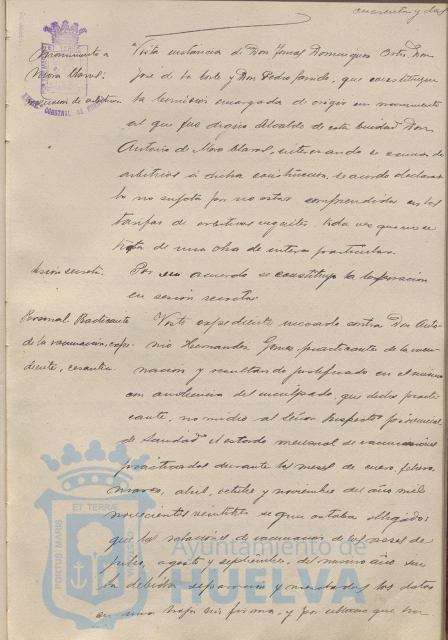 cuarenta y dos
Monumento a
Mora Claros:
exención de arbitrios.
Vista instancia de Don Tomas Dominguez Ortiz, Don
José de la Corte y Don Pedro Garrido, que constituyen
la Comisión encargada de erigir un monumento
al que fue digno Alcalde de esta Ciudad Don
Antonio de Mora Claros, interesando se exima de
arbitrios a dicha construcción, se acordó declarar
la no sujeta por no estar comprendida en las
tarifas de arbitrios vigentes toda vez que no se
trata de una obra de interes particular.
Sesión secreta.
Por acuerdo se constituyó la Corporación
en sesión secreta.
Personal. Practicante
de la vacunación, expe-
diente, cesantia.
Visto expediente incoado contra Don Anto-
nio Hernandez Gomez, practicante de la vacu-
nación y resultando justificado en el mismo
con audiencia del inculpado que dicho practi-
cante, no rindió al Señor Inspector provincial
de Sanidad el estado mensual de vacunaciones
practicadas durante los meses de enero, febrero
marzo, abril, octubre y noviembre del año mil
novecientos veintitres segun estaba obligado;
que las relaciones de vacunación de los meses de
julio, agosto y septiembre, del mismo año sin
la debida separación y mezclados los datos
en una hoja sin firma, y por ultimo que
ET TERRÆ
PORTUS MARIS
CUSTODIA
Ayuntamiento de
HUELVA